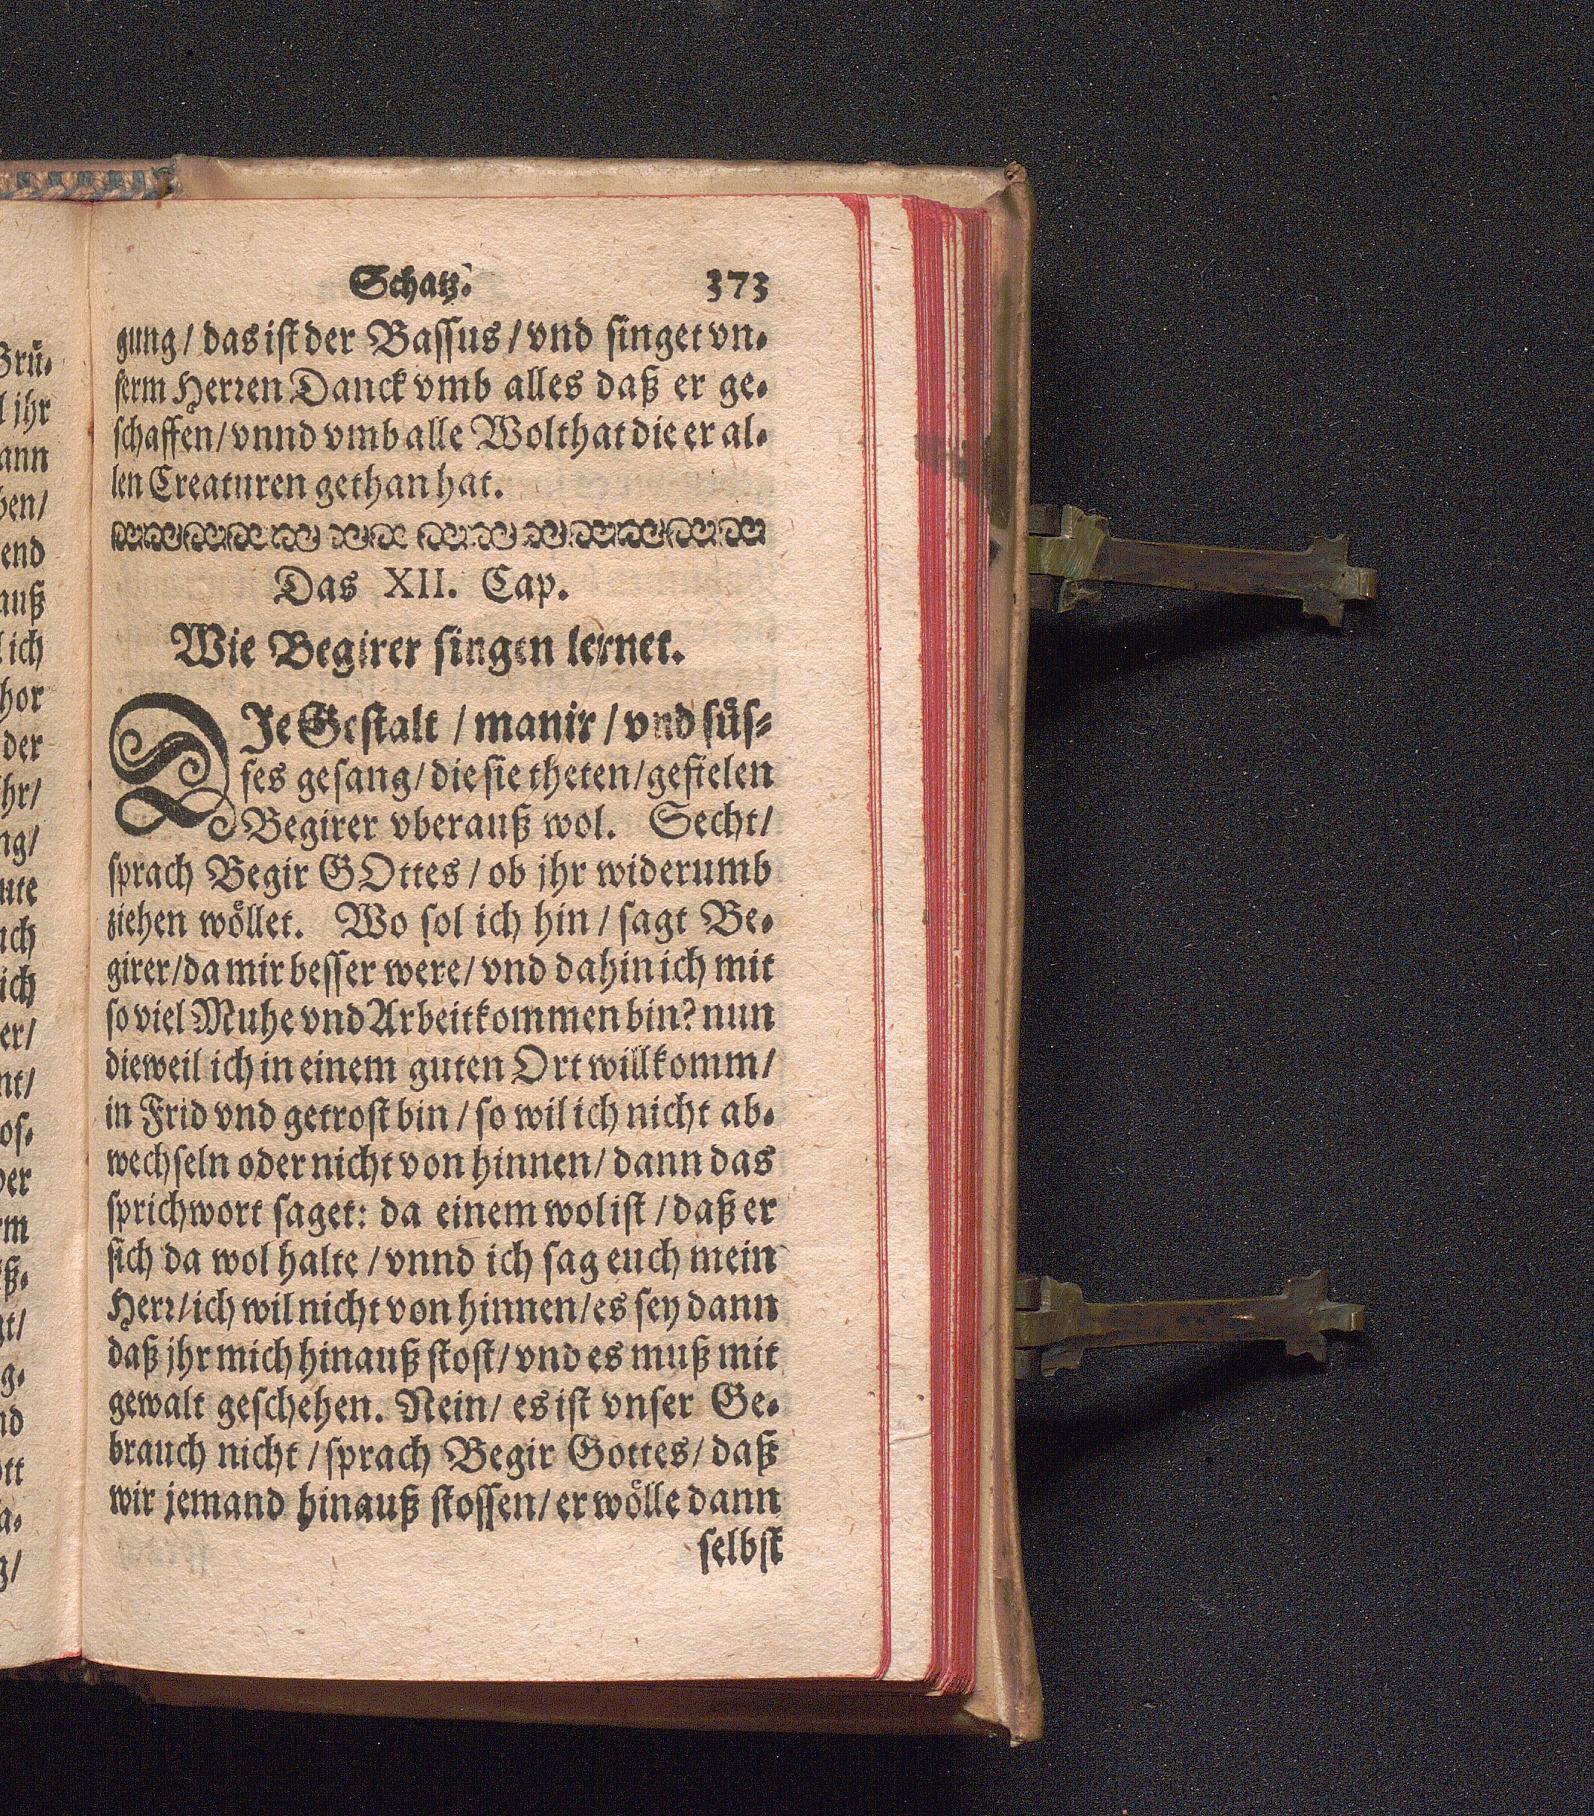 Schatz. 373
gung / das ist der Bassus / vnd singet vn-
serm Herren Danck vmb alles daß er ge-
schaffen / vnnd vmb alle Wolthat die er al-
len Creaturen gethan hat.
Das XII. Cap.
Wie Begirer singen lernet.
DIe Gestalt / manir / vnd süs-
ses gesang / die sie theten / gefielen
Begirer vberauß wol. Secht /
sprach Begir GOttes / ob jhr widerumb
ziehen wöllet. Wo sol ich hin / sagt Be-
girer / da mir besser were / vnd dahin ich mit
so viel Muhe vnd Arbeit kommen bin? nun
dieweil ich in einem guten Ort willkomm /
in Frid vnd getrost bin / so wil ich nicht ab-
wechseln oder nicht von hinnen / dann das
sprichwort saget: da einem wol ist / daß er
sich da wol halte / vnnd ich sag euch mein
Herr / ich wil nicht von hinnen / es sey dann
daß jhr mich hinauß stost / vnd es muß mit
gewalt geschehen. Nein / es ist vnser Ge-
brauch nicht / sprach Begir Gottes / daß
wir jemand hinauß stossen / er wölle dann
selbst